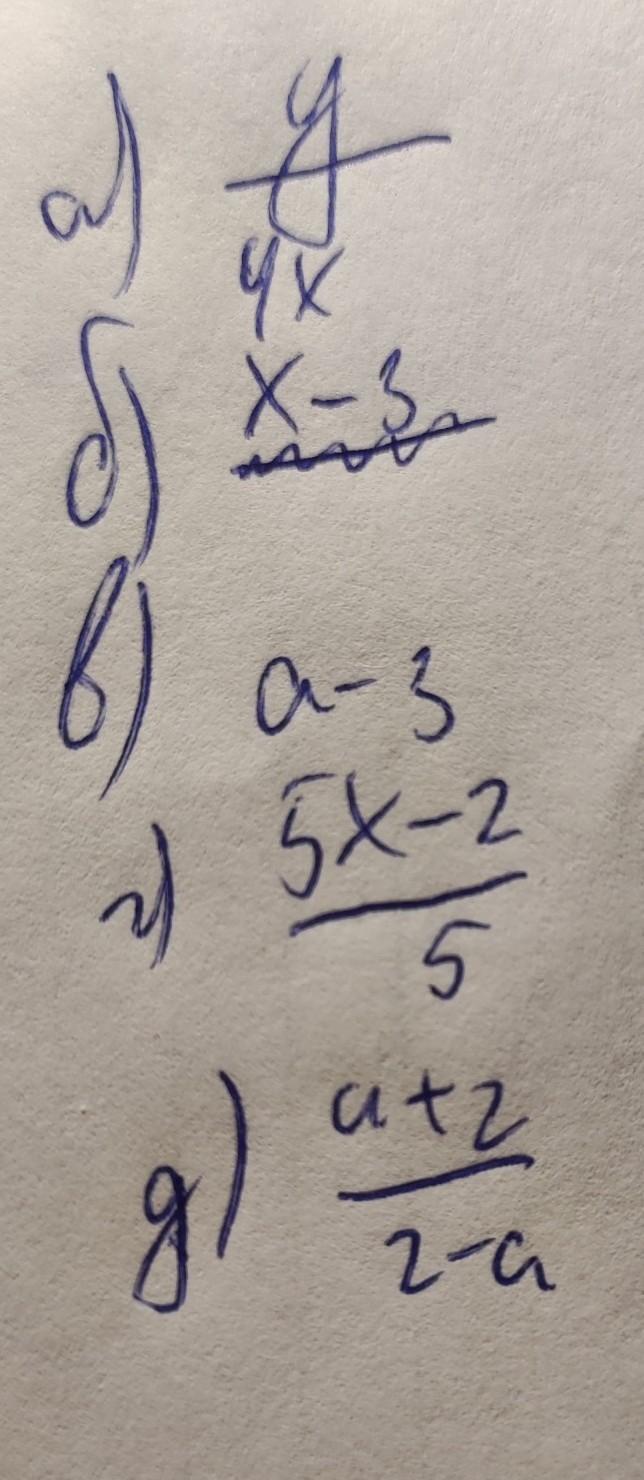 а) y
4x
б) x-3
в) a-3
г) 5x-2
5
д) a+2
2-a